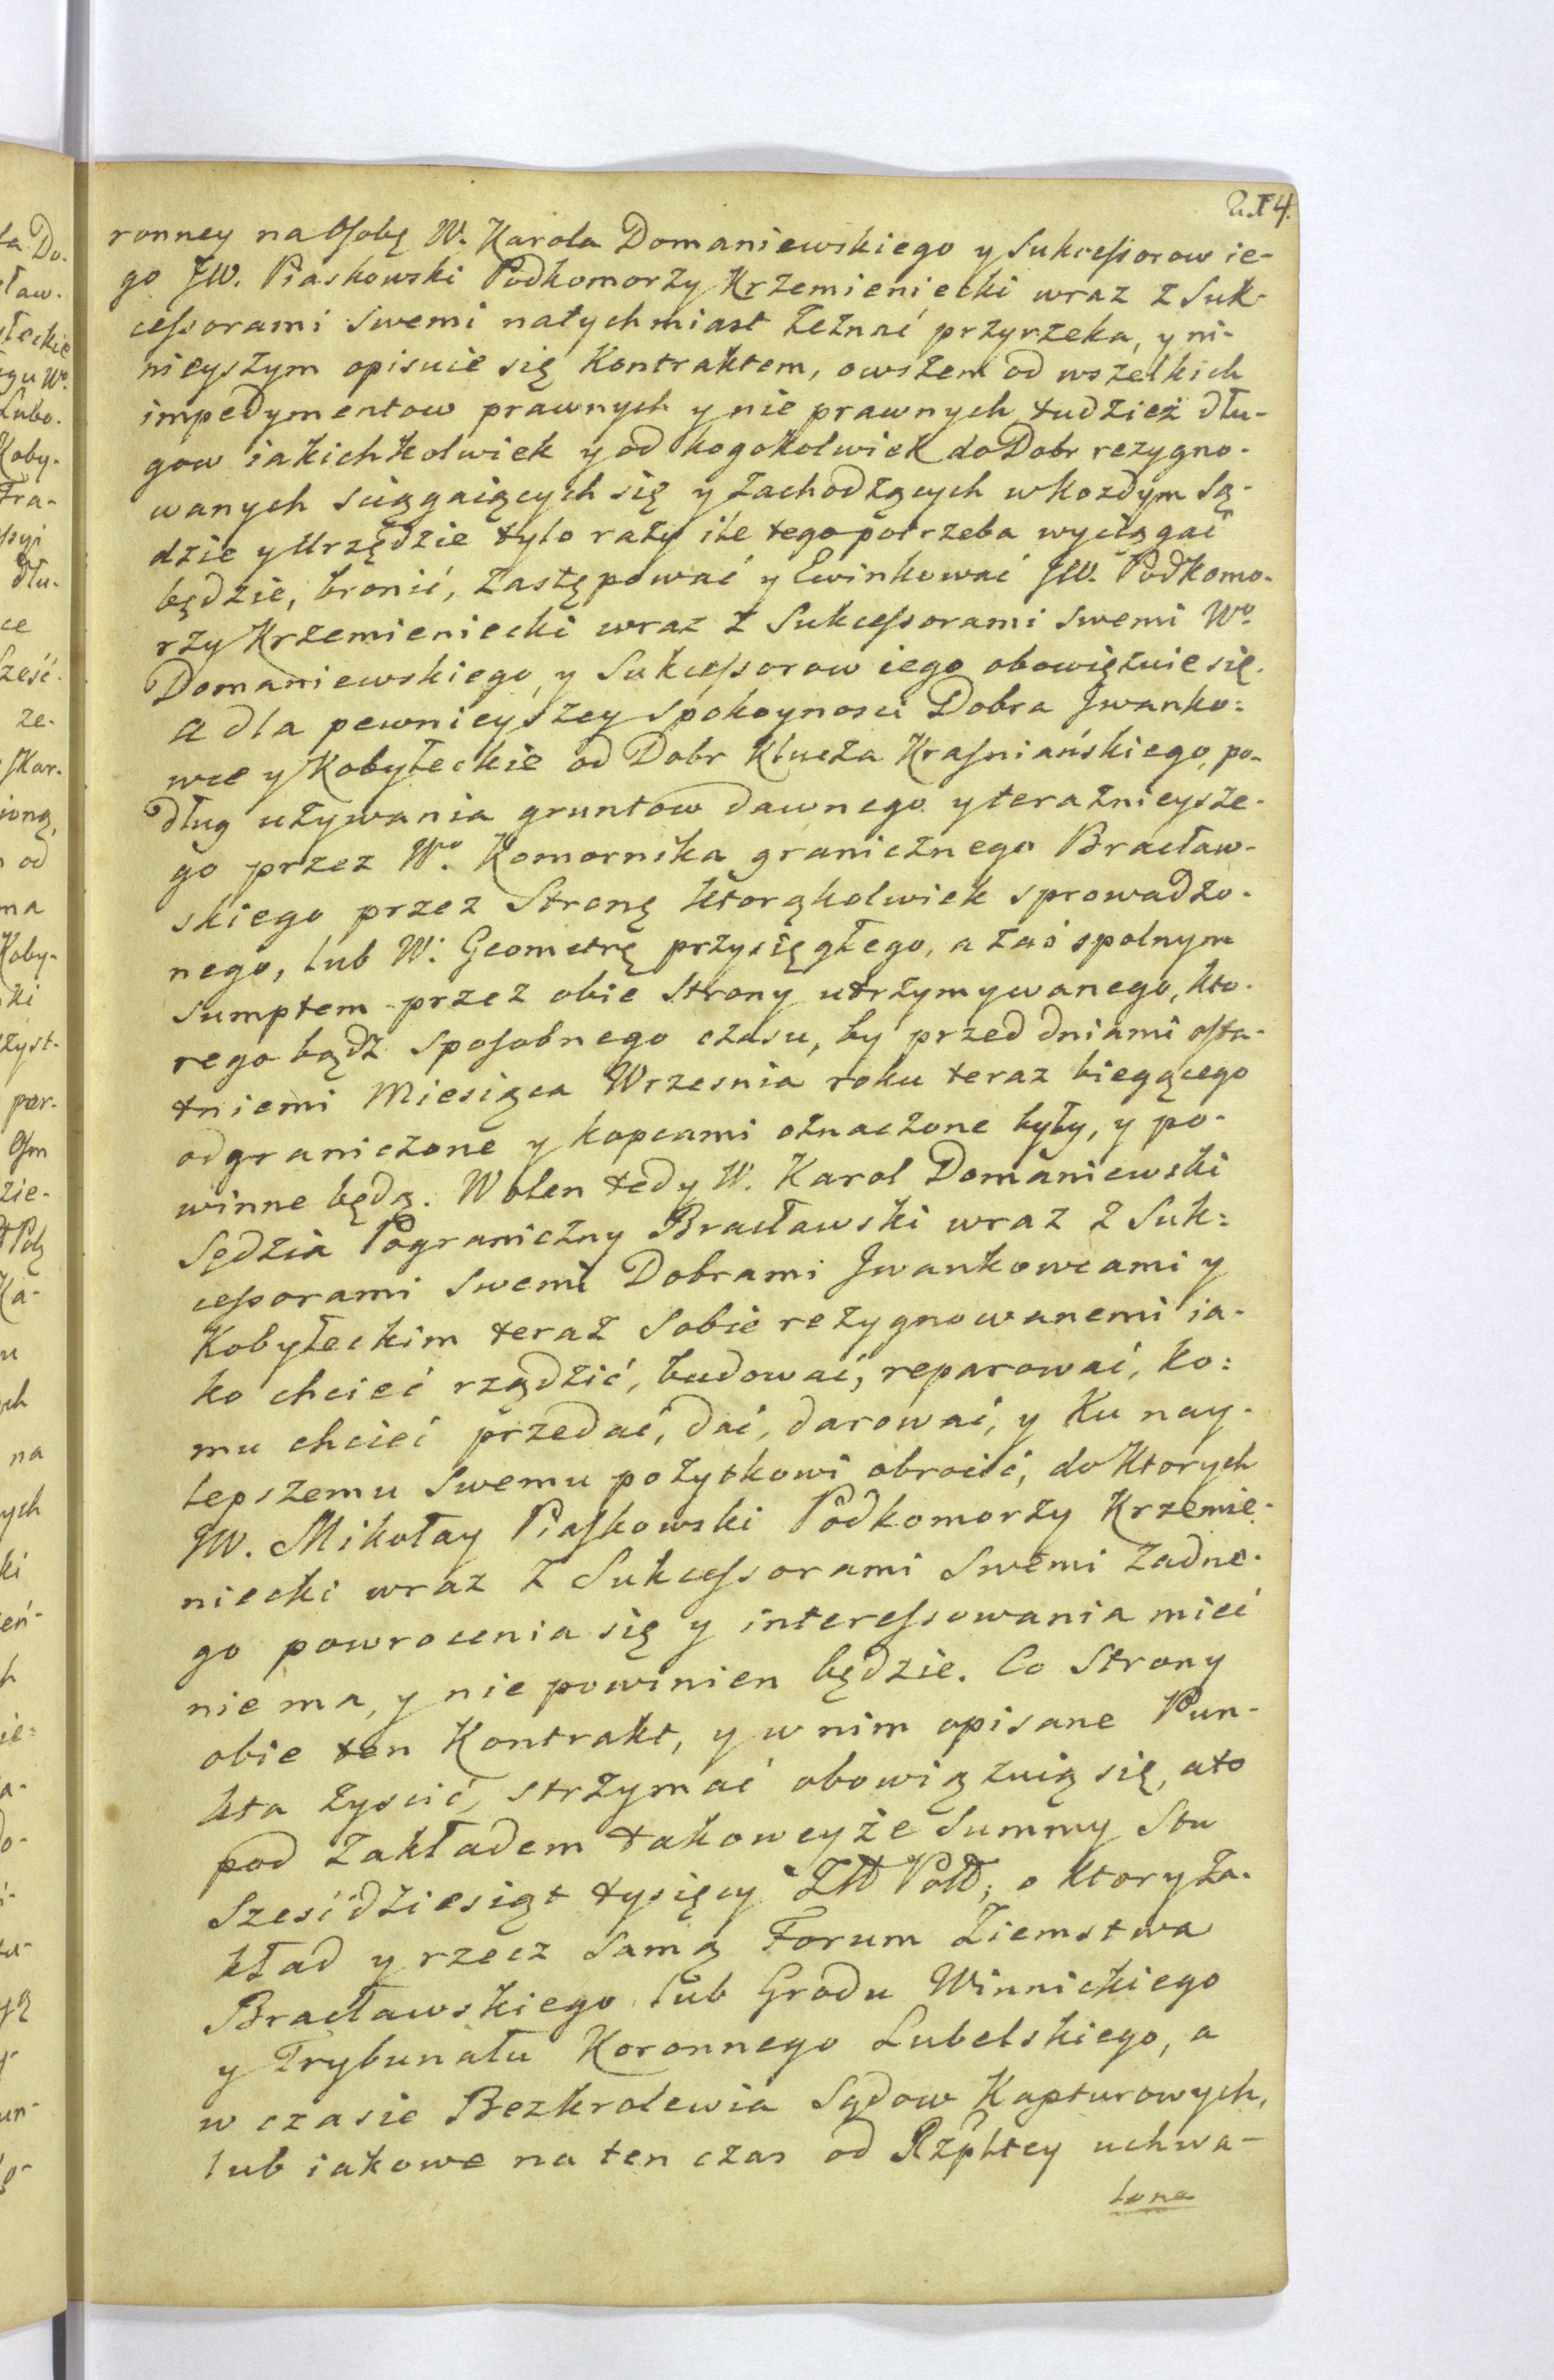 ronney na Osobę W. Karola Domaniewskiego y Sukcessorow ie-
go JW. Piaskowski Podkomorzy Krzemieniecki wraz z Suk-
cessorami Swemi natychmiast zeznać przyrzeka, y ni-
nieyszym opisuie się Kontraktem, owszem od wszelkich
impedymentow prawnych y nie prawnych tudzież dłu-
gow iakichkolwiek y od kogokolwiek do Dobr rezygno-
wanych sciągaiących się y zachodzących w kozdym Są-
dzie y Urzędzie tylo razy ile tego potrzeba wyciągać
będzie, bronić, zastępować y Ewinkować JW. Podkomo-
rzy Krzemieniecki wraz z Sukcessorami Swemi Wo.
Domaniewskiego, y Sukcessorow iego obowięzuie się.
a dla pewnieyszey spokoynosci Dobra Jwanko:
wce y Kobyłeckie od Dobr Klucza Krasniańskiego, po-
dług używania gruntow dawnego y teraznieysze-
go przez Wo. Komornika granicznego Bracław-
skiego przez Stronę ktorąkolwiek sprowadzo-
nego, lub W. Geometrę przysięgłego, a zaś spolnym
sumptem przez obie Strony utrzymywanego, kto-
rego bądz sposobnego czasu, by przed dniami osta-
tniemi Miesiąca Wrzesnia roku teraz biegącego
odgraniczone y kopcami oznaczone były, y po-
winne będą. Wolen tedy W. Karol Domaniewski
Sędzia Pograniczny Bracławski wraz z Suk:
cessorami Swemi Dobrami Jwankowcami y
Kobyłeckim teraz Sobie rezygnowanemi ia-
ko chcieć rządzić, budować, reparować, ko:
mu chcieć przedać, dać, darować, y Ku nay-
lepszemu Swemu pożytkowi obrocić, do Ktorych
JW. Mikołay Piaskowski Podkomorzy Krzemie-
niecki wraz z Sukcessorami Swemi zadne-
go powrocenia się y interessowania mieć
nie ma, y nie powinien będzie. Co Strony
obie ten Kontrakt, y w nim opisane Pun-
kta zyscić, strzymać obowiązuią się, a to
pod Zakładem takoweyże Summy Stu
Sześćdziesiąt tysięcy Złł Poll; o ktory za-
kład y rzecz samą Forum Ziemstwa
Bracławskiego lub Grodu Winnickiego
y Trybunału Koronnego Lubelskiego, a
w czasie Bezkrolewia Sądow Kapturowych,
lub iakowe na ten czas od Rzpltey uchwa-
lone